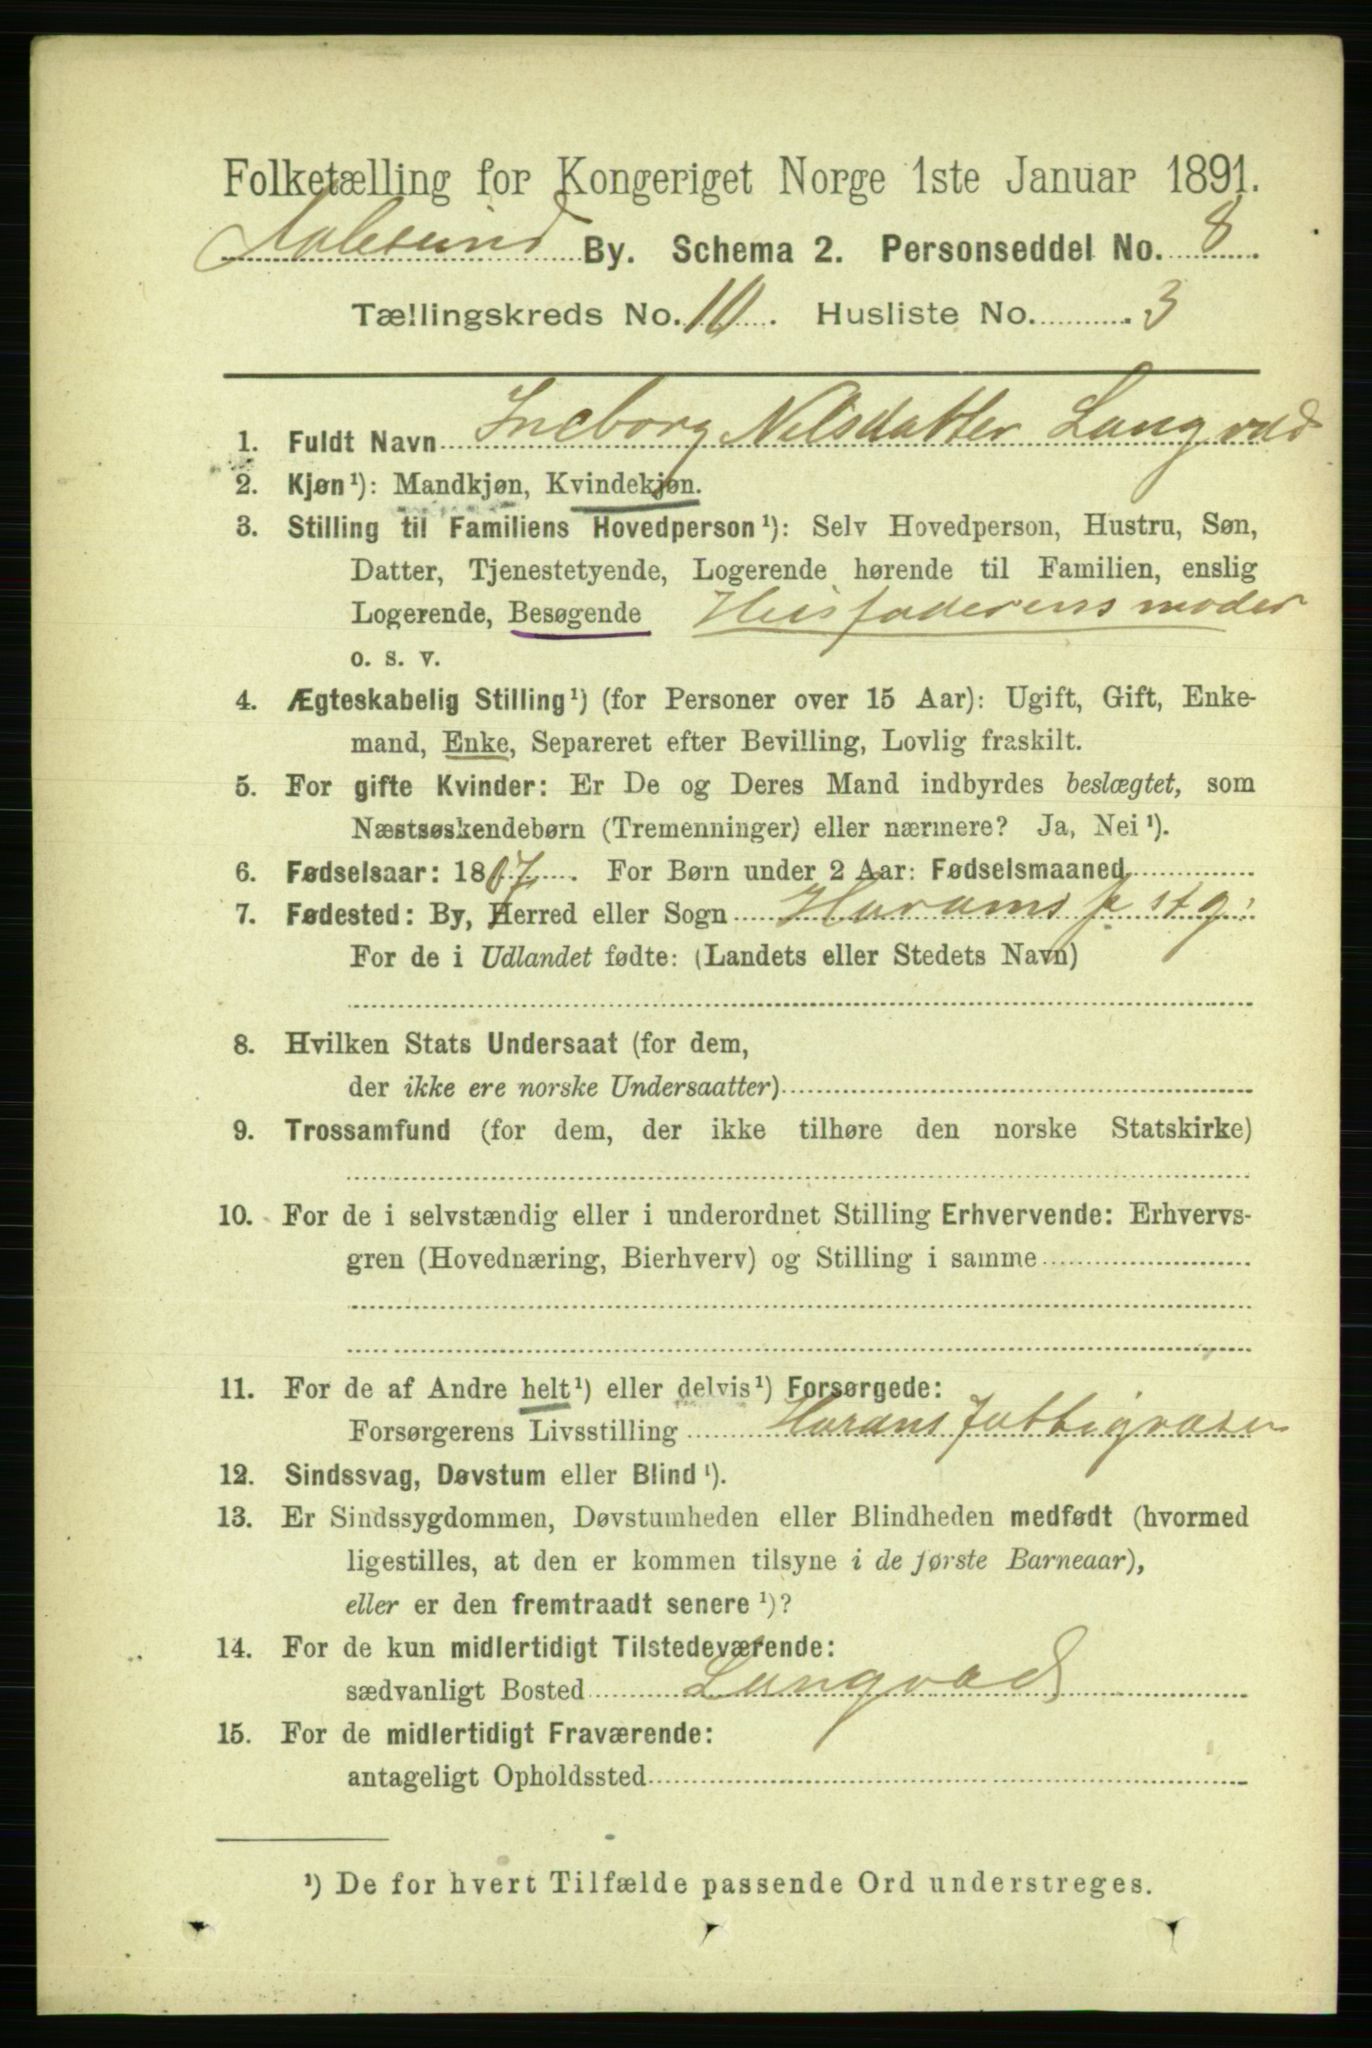 Folketælling for Kongeriget Norge 1ste Januar 1891.
Aalesund By. Schema 2. Personseddel No. 8.
Tællingskreds No. 10. Husliste No. 3
1. Fuldt Navn Ineborg Nilsdatter Langvad
2. Kjøn¹): Mandkjøn, Kvindekjøn.
3. Stilling til Familiens Hovedperson¹): Selv Hovedperson, Hustru, Søn,
Datter, Tjenestetyende, Logerende hørende til Familien, enslig
Logerende, Besøgende Husfaderens moder
o. s. v.
4. Ægteskabelig Stilling¹) (for Personer over 15 Aar): Ugift, Gift, Enke-
mand, Enke, Separeret efter Bevilling, Lovlig fraskilt.
5. For gifte Kvinder: Er De og Deres Mand indbyrdes beslægtet, som
Næstsøskendebørn (Tremenninger) eller nærmere? Ja, Nei¹).
6. Fødselsaar: 1807. For Børn under 2 Aar: Fødselsmaaned
7. Fødested: By, Herred eller Sogn Harams p stg:
For de i Udlandet fødte: (Landets eller Stedets Navn)
8. Hvilken Stats Undersaat (for dem,
der ikke ere norske Undersaatter)
9. Trossamfund (for dem, der ikke tilhøre den norske Statskirke)
10. For de i selvstændig eller i underordnet Stilling Erhvervende: Erhvervs-
gren (Hovednæring, Bierhverv) og Stilling i samme
11. For de af Andre helt¹) eller delvis¹) Forsørgede:
Forsørgerens Livsstilling Harams fattigvæsen
12. Sindssvag, Døvstum eller Blind¹).
13. Er Sindssygdommen, Døvstumheden eller Blindheden medfødt (hvormed
ligestilles, at den er kommen tilsyne i de første Barneaar),
eller er den fremtraadt senere¹)?
14. For de kun midlertidigt Tilstedeværende:
sædvanligt Bosted Langvad
15. For de midlertidigt Fraværende:
antageligt Opholdssted
¹) De for hvert Tilfælde passende Ord understreges.